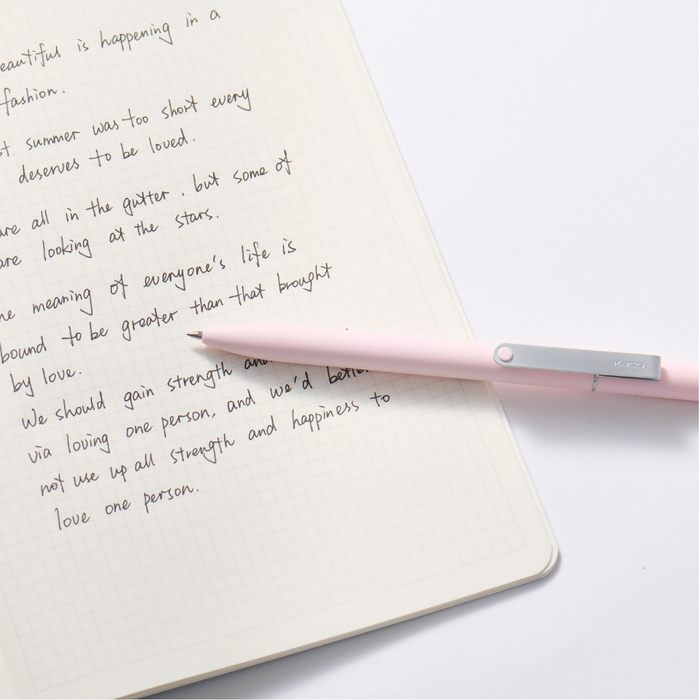 eautiful is happening in a
fashion.
st summer was too short every
deserves to be loved.
are all in the gutter, but some of
are looking at the stars.
he meaning of everyone's life is
bound to be greater than that brought
by love.
We should gain strength and
via loving one person, and we'd better
not use up all strength and happiness to
love one person.
KACO